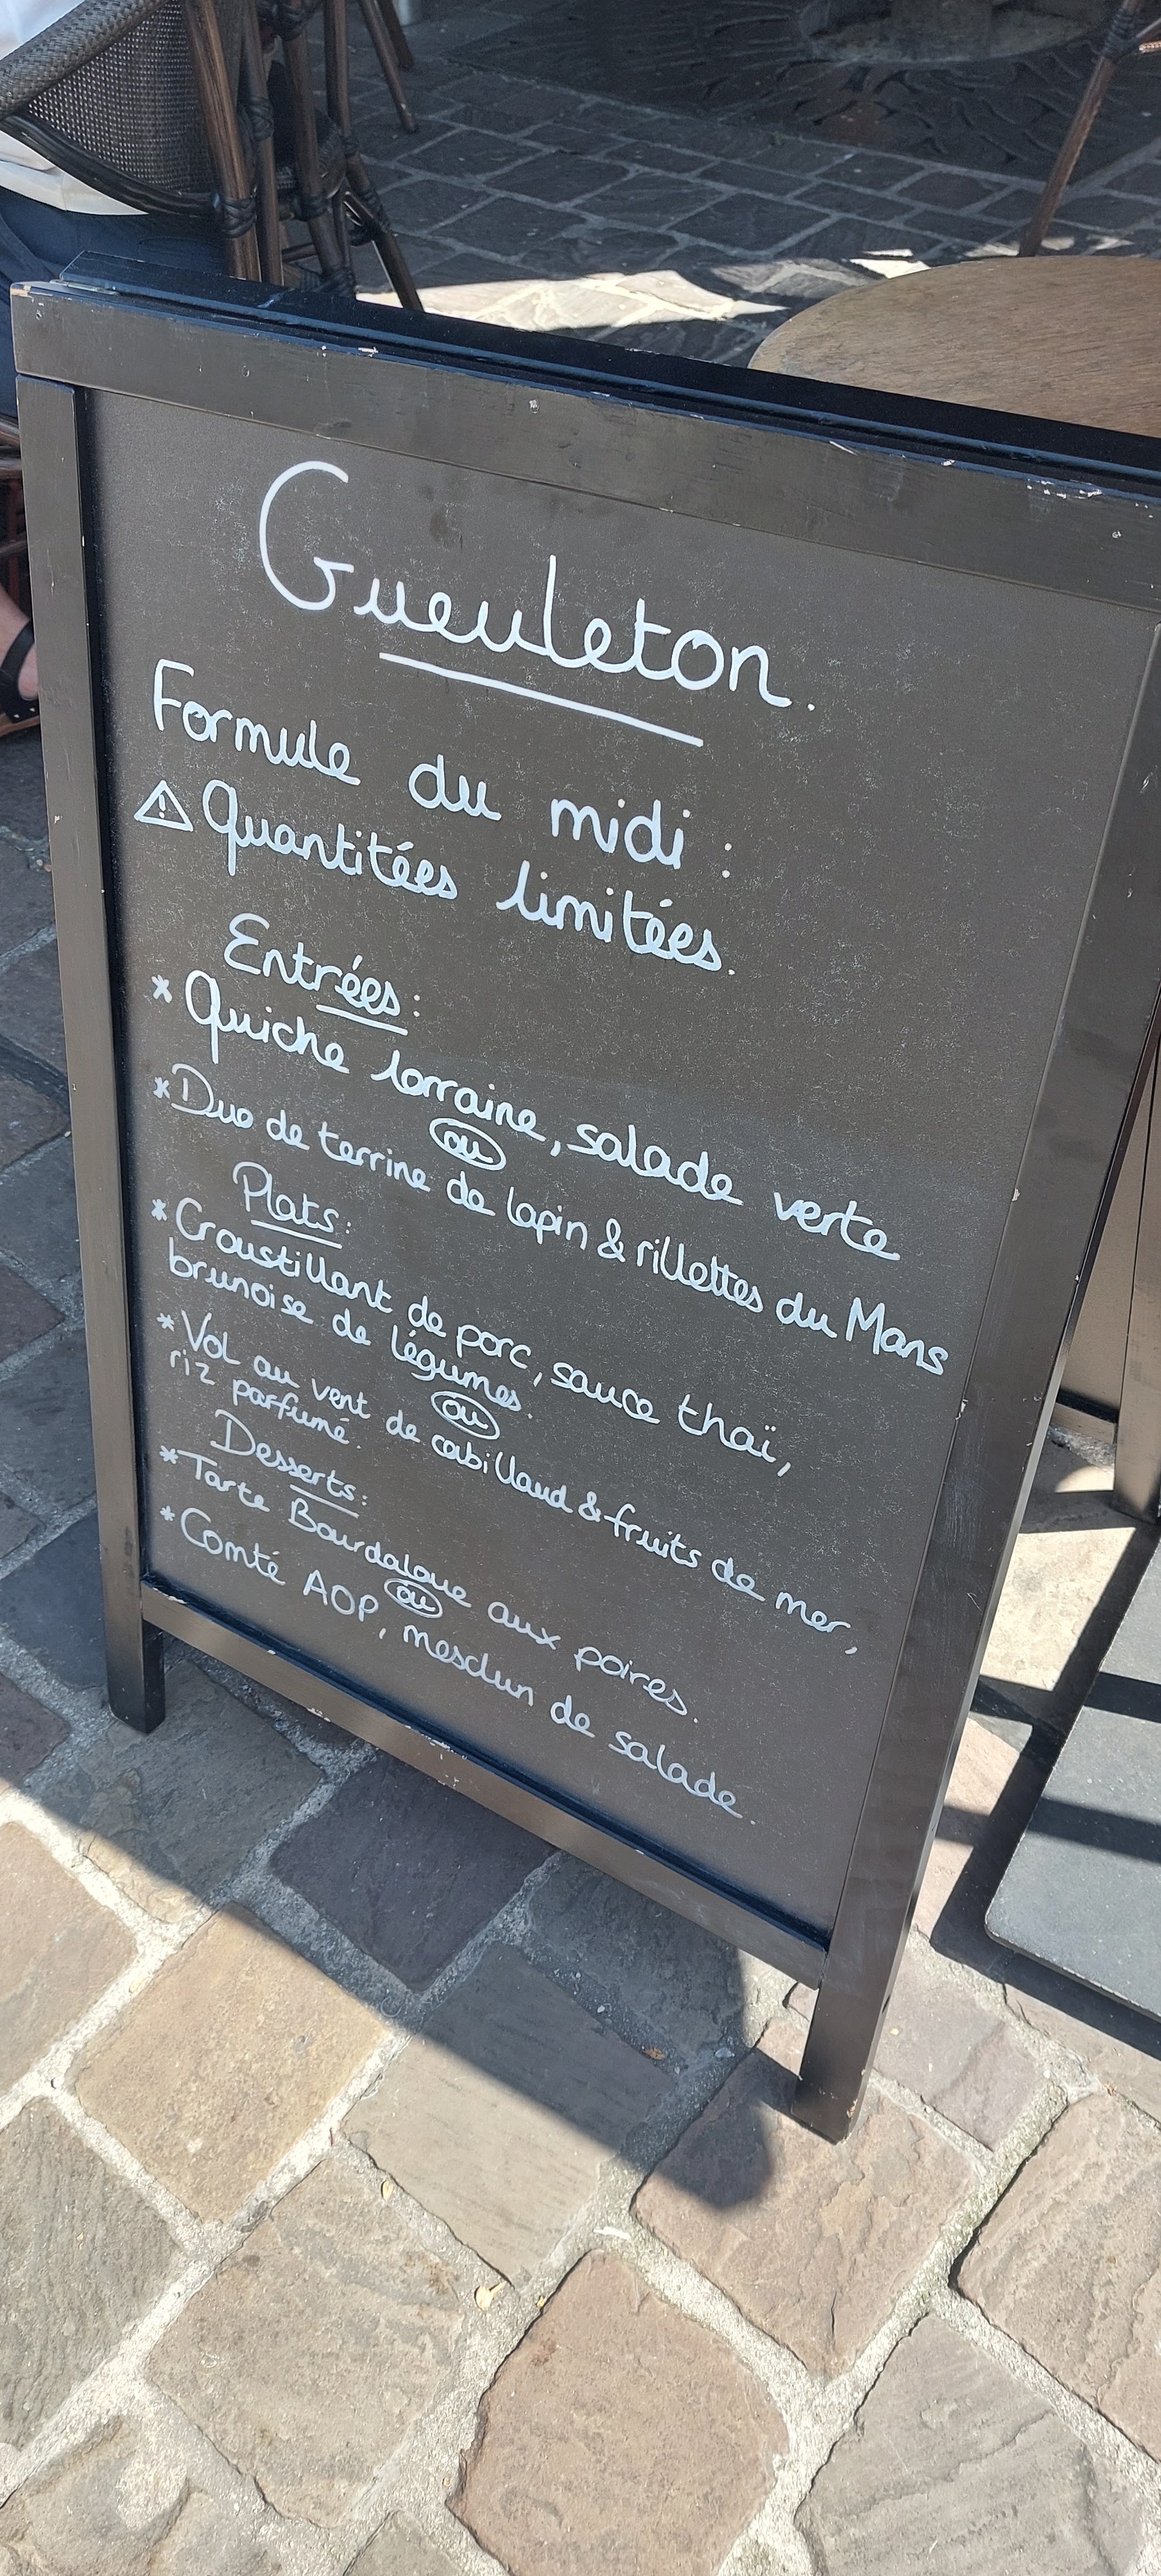 Gueuleton.
Formule du midi :
⚠ Quantitées limitées.
Entrées :
* Quiche lorraine, salade verte
ou
* Duo de terrine de lapin & rillettes du Mans
Plats :
* Croustillant de porc, sauce thaï,
brunoise de légumes.
ou
* Vol au vent de cabillaud & fruits de mer,
riz parfumé.
Desserts :
* Tarte Bourdaloue aux poires.
ou
* Comté AOP, mesclun de salade.